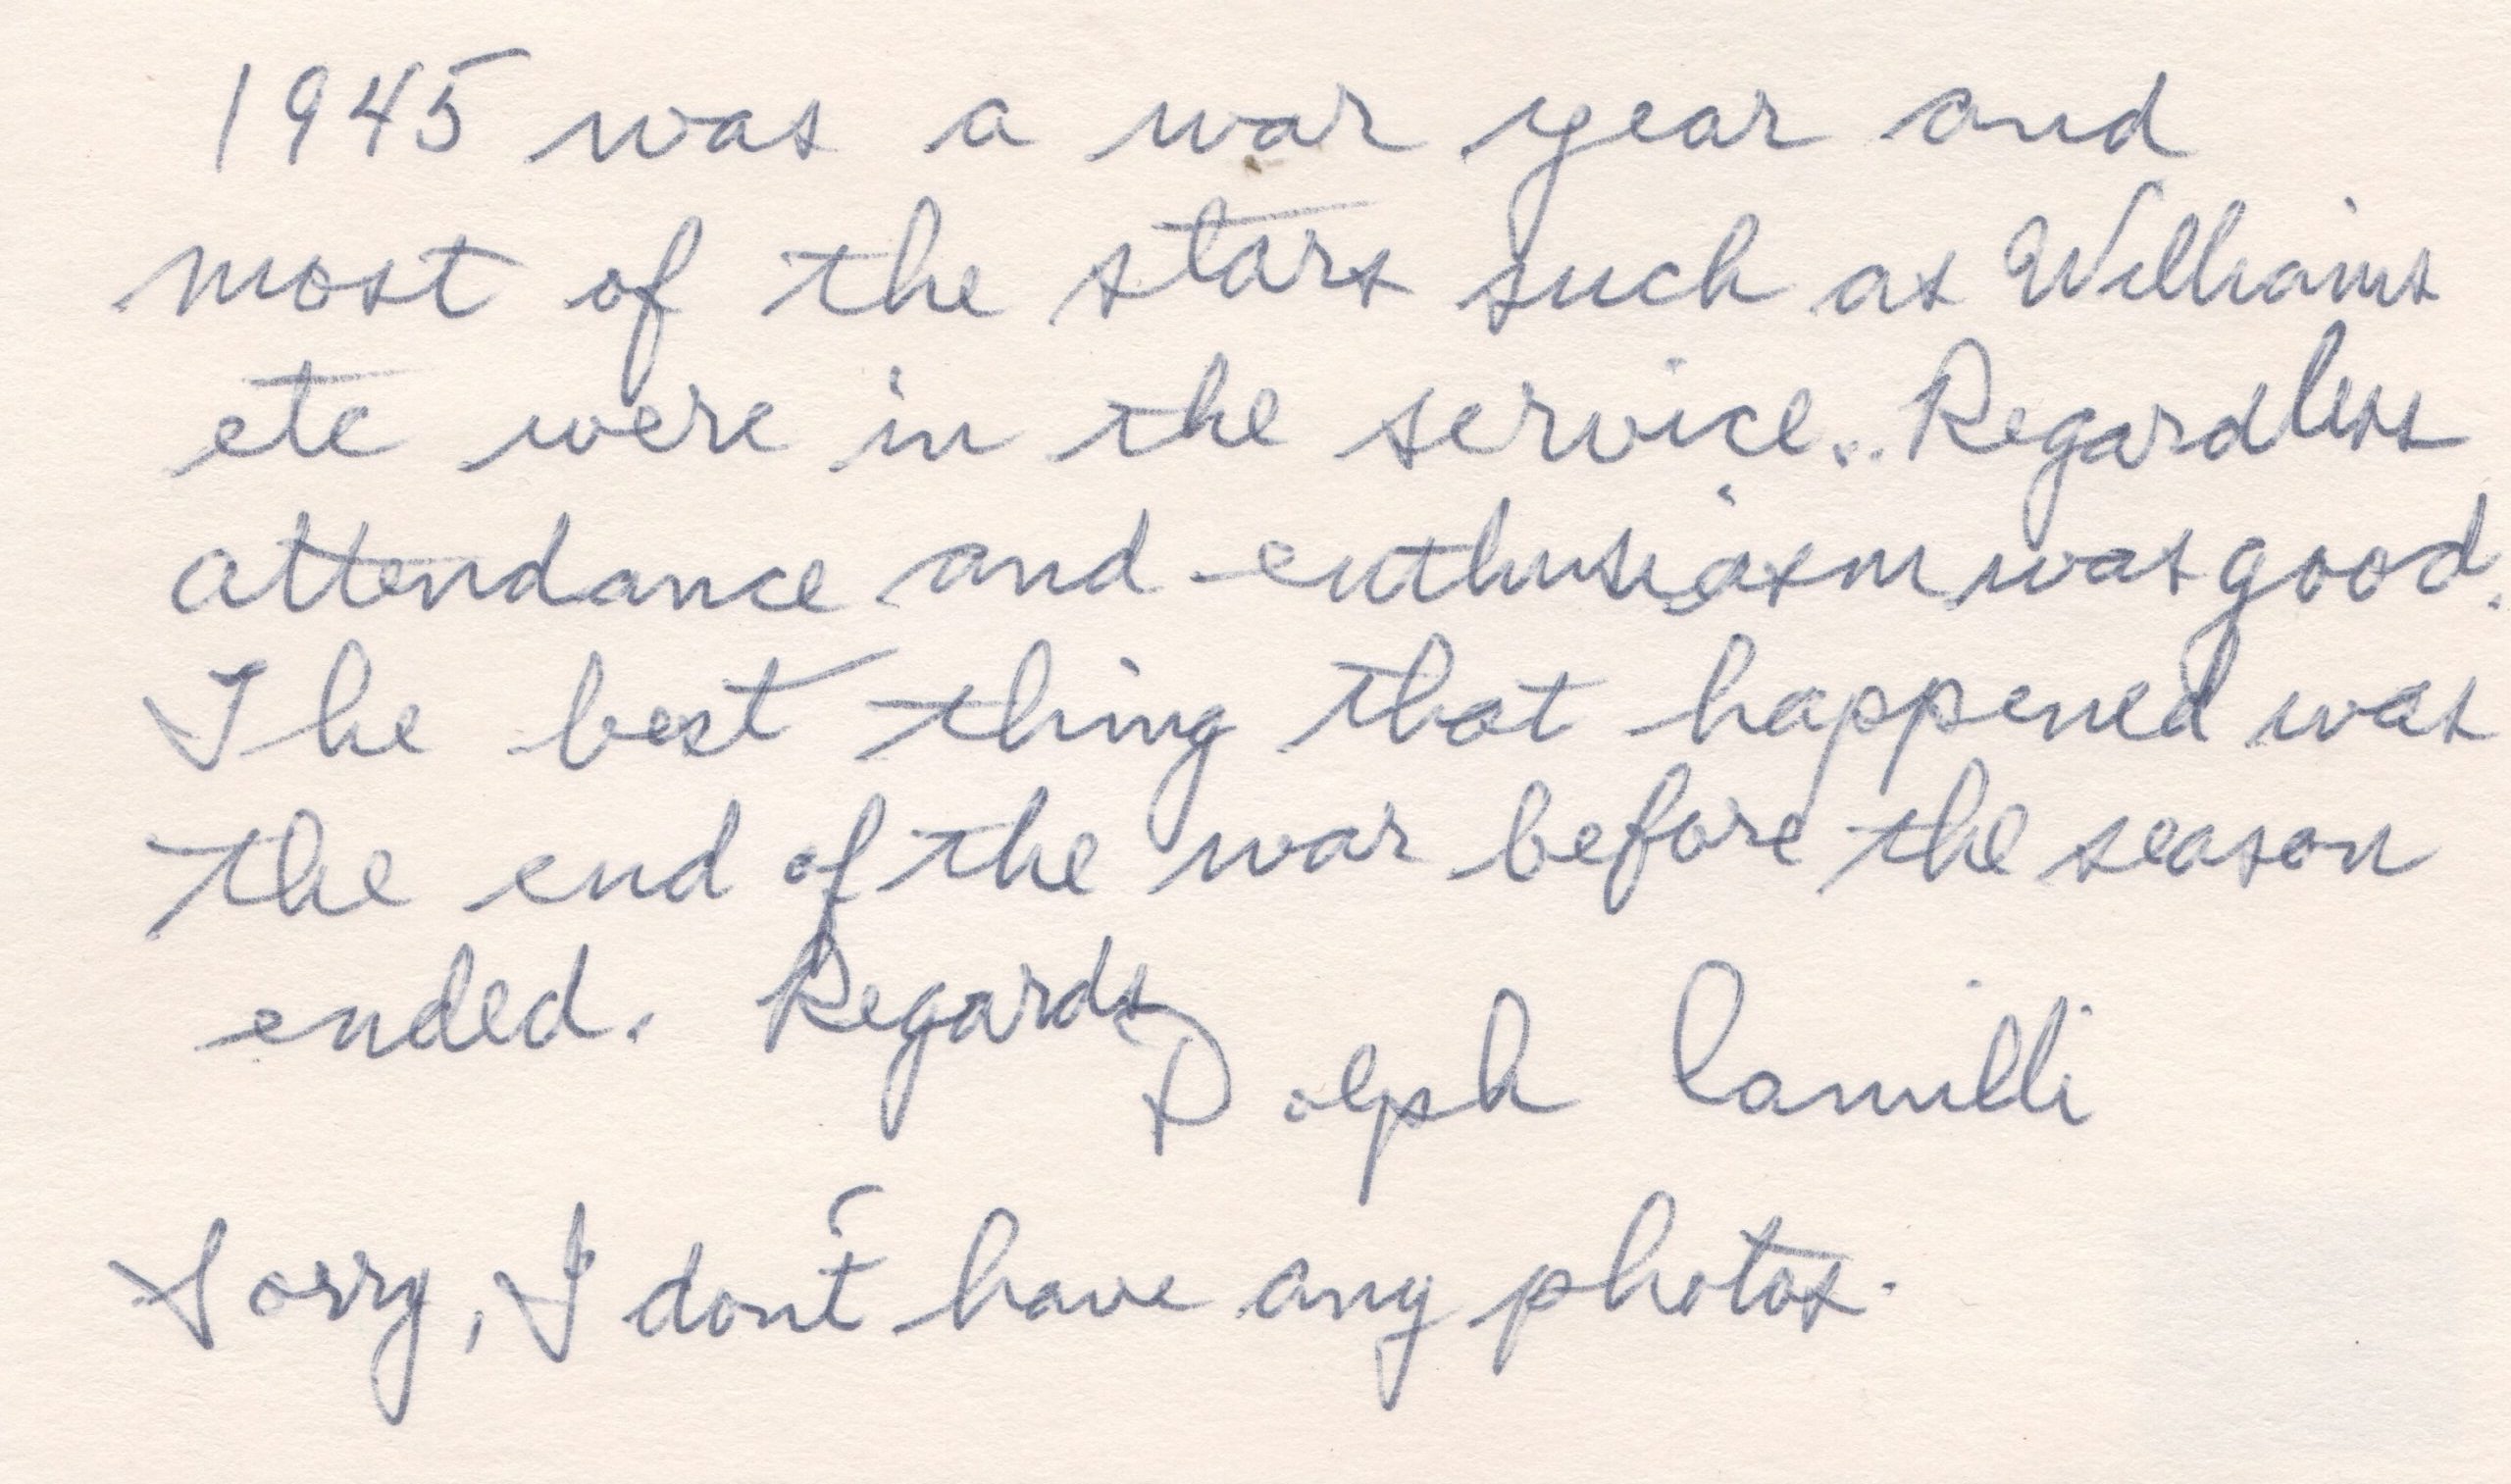 1945 was a war year and
most of the stars such as Williams
etc were in the service.. Regardless
attendance and enthusiasm was good.
The best thing that happened was
the end of the war before the season
ended. Regards
Dolph Camilli
Sorry, I don't have any photos.